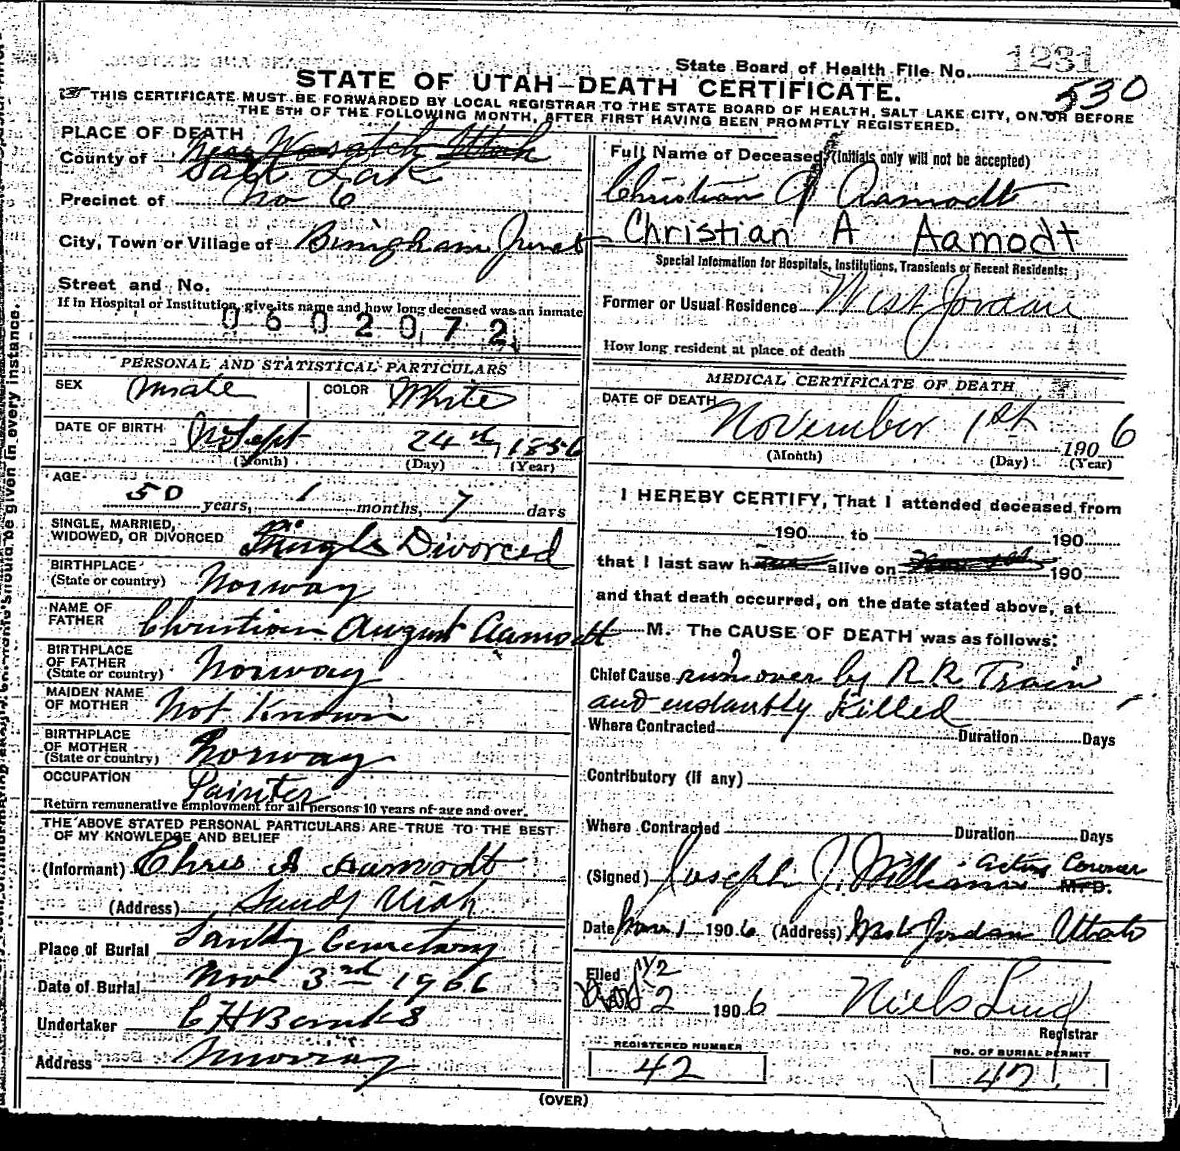 State Board of Health File No. 1231
530
STATE OF UTAH—DEATH CERTIFICATE.
THIS CERTIFICATE MUST BE FORWARDED BY LOCAL REGISTRAR TO THE STATE BOARD OF HEALTH, SALT LAKE CITY, ON OR BEFORE
THE 5TH OF THE FOLLOWING MONTH, AFTER FIRST HAVING BEEN PROMPTLY REGISTERED.
PLACE OF DEATH
County of Near Wasatch Utah
Salt Lake
Precinct of No 6
City, Town or Village of Bingham Junct
Street and No.
If in Hospital or Institution, give its name and how long deceased was an inmate
0602072
PERSONAL AND STATISTICAL PARTICULARS
SEX Male COLOR White
DATE OF BIRTH Sept 24th, 1856
(Month) (Day) (Year)
AGE
50 years, 1 months, 7 days
SINGLE, MARRIED,
WIDOWED, OR DIVORCED Single Divorced
BIRTHPLACE
(State or country) Norway
NAME OF
FATHER Christian August Aamodt
BIRTHPLACE
OF FATHER
(State or country) Norway
MAIDEN NAME
OF MOTHER Not Known
BIRTHPLACE
OF MOTHER
(State or country) Norway
OCCUPATION Painter
Return remunerative employment for all persons 10 years of age and over.
THE ABOVE STATED PERSONAL PARTICULARS ARE TRUE TO THE BEST
OF MY KNOWLEDGE AND BELIEF
(Informant) Chris A Aamodt
(Address) Sandy Utah
Place of Burial Sandy Cemetary
Date of Burial Nov 3rd 1906
Undertaker
Address Murray
Full Name of Deceased (Initials only will not be accepted)
Christian A Aamodt
Christian A Aamodt
Special Information for Hospitals, Institutions, Transients or Recent Residents:
Former or Usual Residence West Jordan
How long resident at place of death
MEDICAL CERTIFICATE OF DEATH
DATE OF DEATH
November 1st 1906
(Month) (Day) (Year)
I HEREBY CERTIFY, That I attended deceased from
190 to 190
that I last saw h alive on 190
and that death occurred, on the date stated above, at
M. The CAUSE OF DEATH was as follows:
Chief Cause run over by R.R. Train
and instantly Killed
Where Contracted Duration Days
Contributory (if any)
Where Contracted Duration Days
(Signed) Joseph J. Williams Acting Coroner M.D.
Date Nov 1 1906 (Address) West Jordan Utah
Filed 2 1906 Niels Lind
Registrar
REGISTERED NUMBER
42
NO. OF BURIAL PERMIT
42
(OVER)